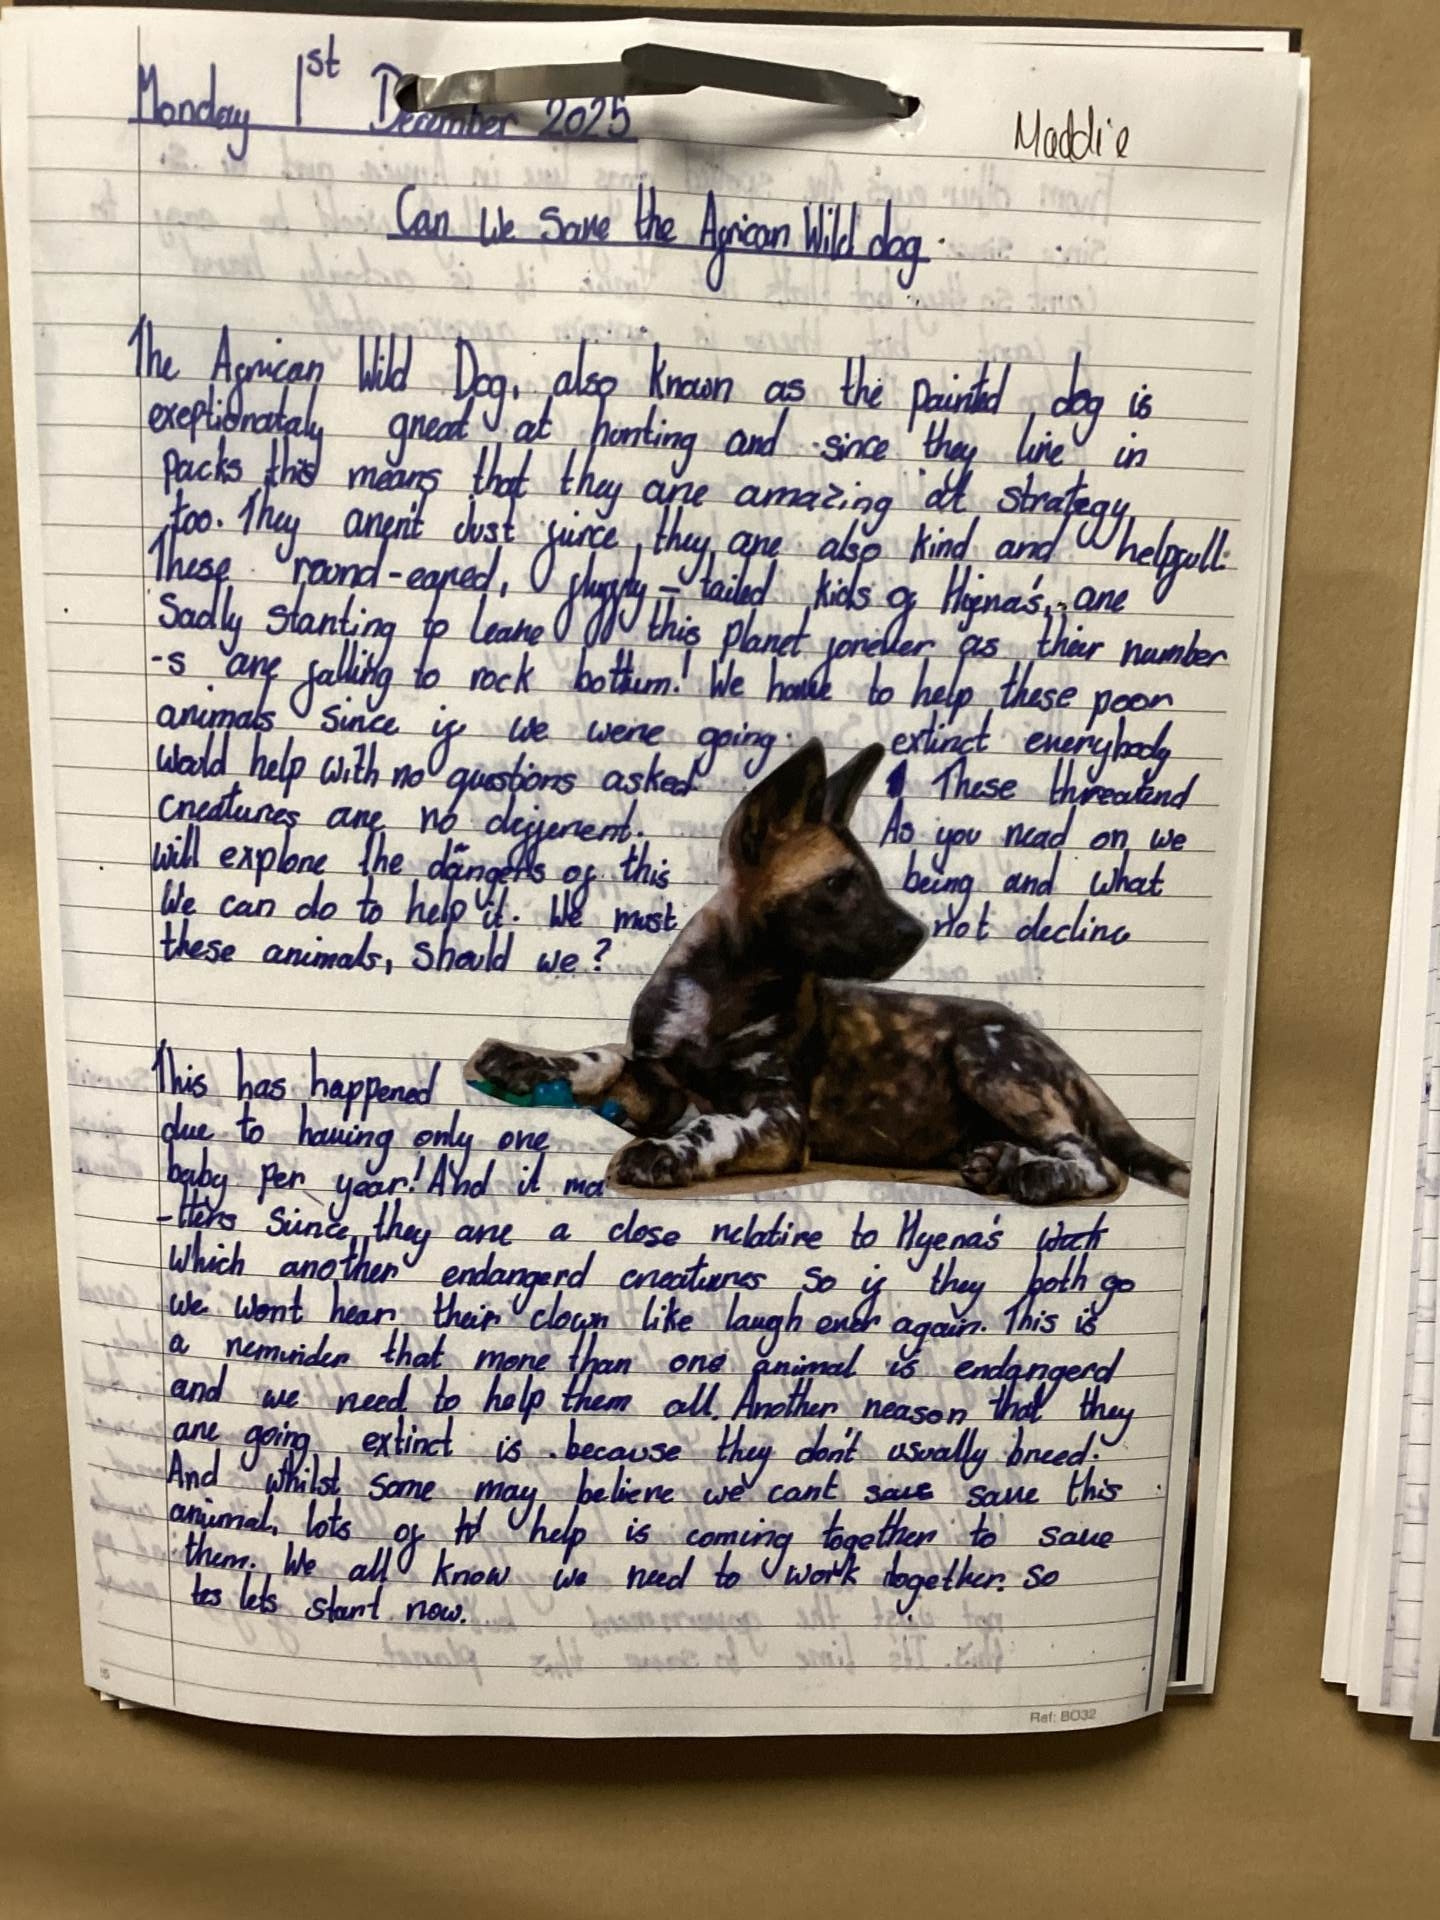 Monday 1st December 2025
Maddie
Can We Save the African Wild dog.
The African Wild Dog, also known as the painted dog is
exeptionataly great at hunting and since they live in
packs this means that they are amazing at strategy
too. They aren't Just firce, they are also kind and helpfull.
These round-eared, fluffly-tailed kids of Hyena's, are
Sadly Starting to leave this planet forever as their number
-s are falling to rock bottum! We have to help these poor
animals since if we were going extinct everybody
would help with no questions asked! These threatend
creatures are no different. As you read on we
will explore the dangers of this being and what
We can do to help it. We must not decline
these animals, should we?
This has happened
due to having only one
baby per year! And it ma
-tters since they are a close relative to Hyena's
which another endangerd creatures so if they both go
we wont hear their clown like laugh ever again. This is
a reminder that more than one animal is endangerd
and we need to help them all. Another reason that they
are going extinct is because they don't usually breed.
And whilst some may believe we cant save this
animal, lots of help is coming together to save
them. We all know we need to work together. So
lets start now.
Ref: BO32